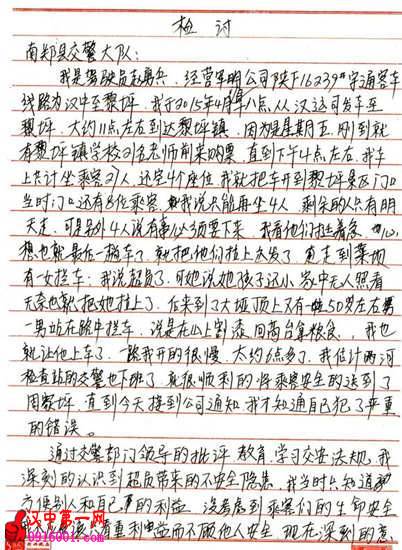 检讨
南郑县交警大队:
我是驾驶员赵勇兵、经营军明公司陕F16239#宇通客车
线路为汉中至黎坪、我于2015年4月 八点、从汉运司发车至
黎坪、大约11点左右到达黎坪镇、因为是星期五、刚到就
有黎坪镇学校21名老师前来购票、直到下午4点左右、我车
上共计坐乘客21人、还空4个座位、我就把车开到黎坪景区门口
当时门口还有8位乘客、我说只能再坐4人、剩余的只有明
天走、可是另外4人说有事今天须要下来、我看他们挺着急、心
想也就最后一趟车了、就把他们拉上出发了、直走到
有一女拦车:我说超员了、可她说她孩子还小、家中无人照看
无奈也就把她拉上了、但来到了大垭顶上又有一50岁左右
一男站在路中拦车、说是在山上割漆、回 拿粮食、我也
就让他上车了、一路我开的很慢、大约6点多了、我估计两河
检查站的交警也下班了、就很顺利的将乘客安全的送到了
周家坪、直到今天接到公司通知、我才知道自己犯了严重
的错误。
通过交警部门领导的批评教育、学习交安法规、我
深刻的认识到超员带来的不安全隐患、我当时只知道
方便别人和自己的利益、没考虑到乘客们的生命安全
我 重利益而不顾他人安全、现在深刻的意
汉中第一网
0916001.com